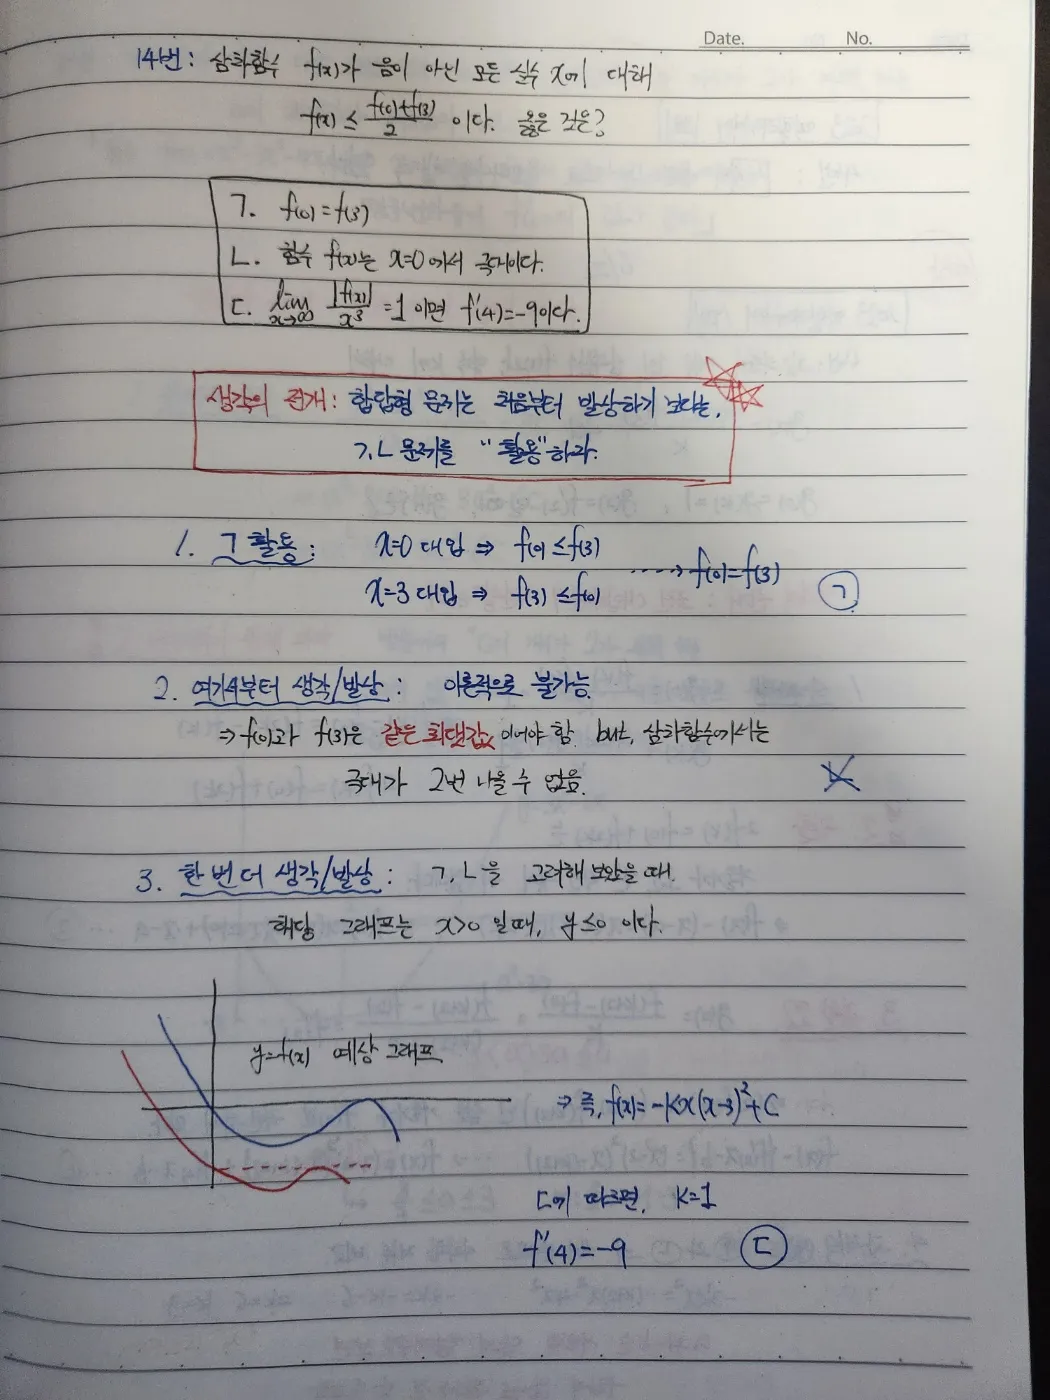 Date. No.
14번: 삼차함수 f(x)가 음이 아닌 모든 실수 x에 대해
f(x) ≤ (f(0)+f(3))/2 이다. 옳은 것은?
ㄱ. f(0)=f(3)
ㄴ. 함수 f(x)는 x=0에서 극대이다.
ㄷ. lim x→∞ |f(x)|/x³ =1 이면 f'(4)=-9이다.
생각의 전개: 합답형 문제는 처음부터 발상하기 보다는,
ㄱ,ㄴ 문제를 "활용"하라.
1. ㄱ 활용: x=0 대입 ⇒ f(0) ≤ f(3)
x=3 대입 ⇒ f(3) ≤ f(0) ····→ f(0)=f(3) ㄱ
2. 여기서부터 생각/발상 : 이론적으로 불가능
⇒ f(0)과 f(3)은 같은 최댓값 이어야 함. but, 삼차함수에서는
극대가 2번 나올 수 없음. ㄴ
3. 한 번 더 생각/발상 : ㄱ,ㄴ을 고려해 보았을 때.
해당 그래프는 x>0 일때, y≤0 이다.
y=f(x) 예상 그래프
⇒ 즉, f(x)=-kx(x-3)²+C
ㄷ에 따르면, k=1
f'(4)=-9 ㄷ